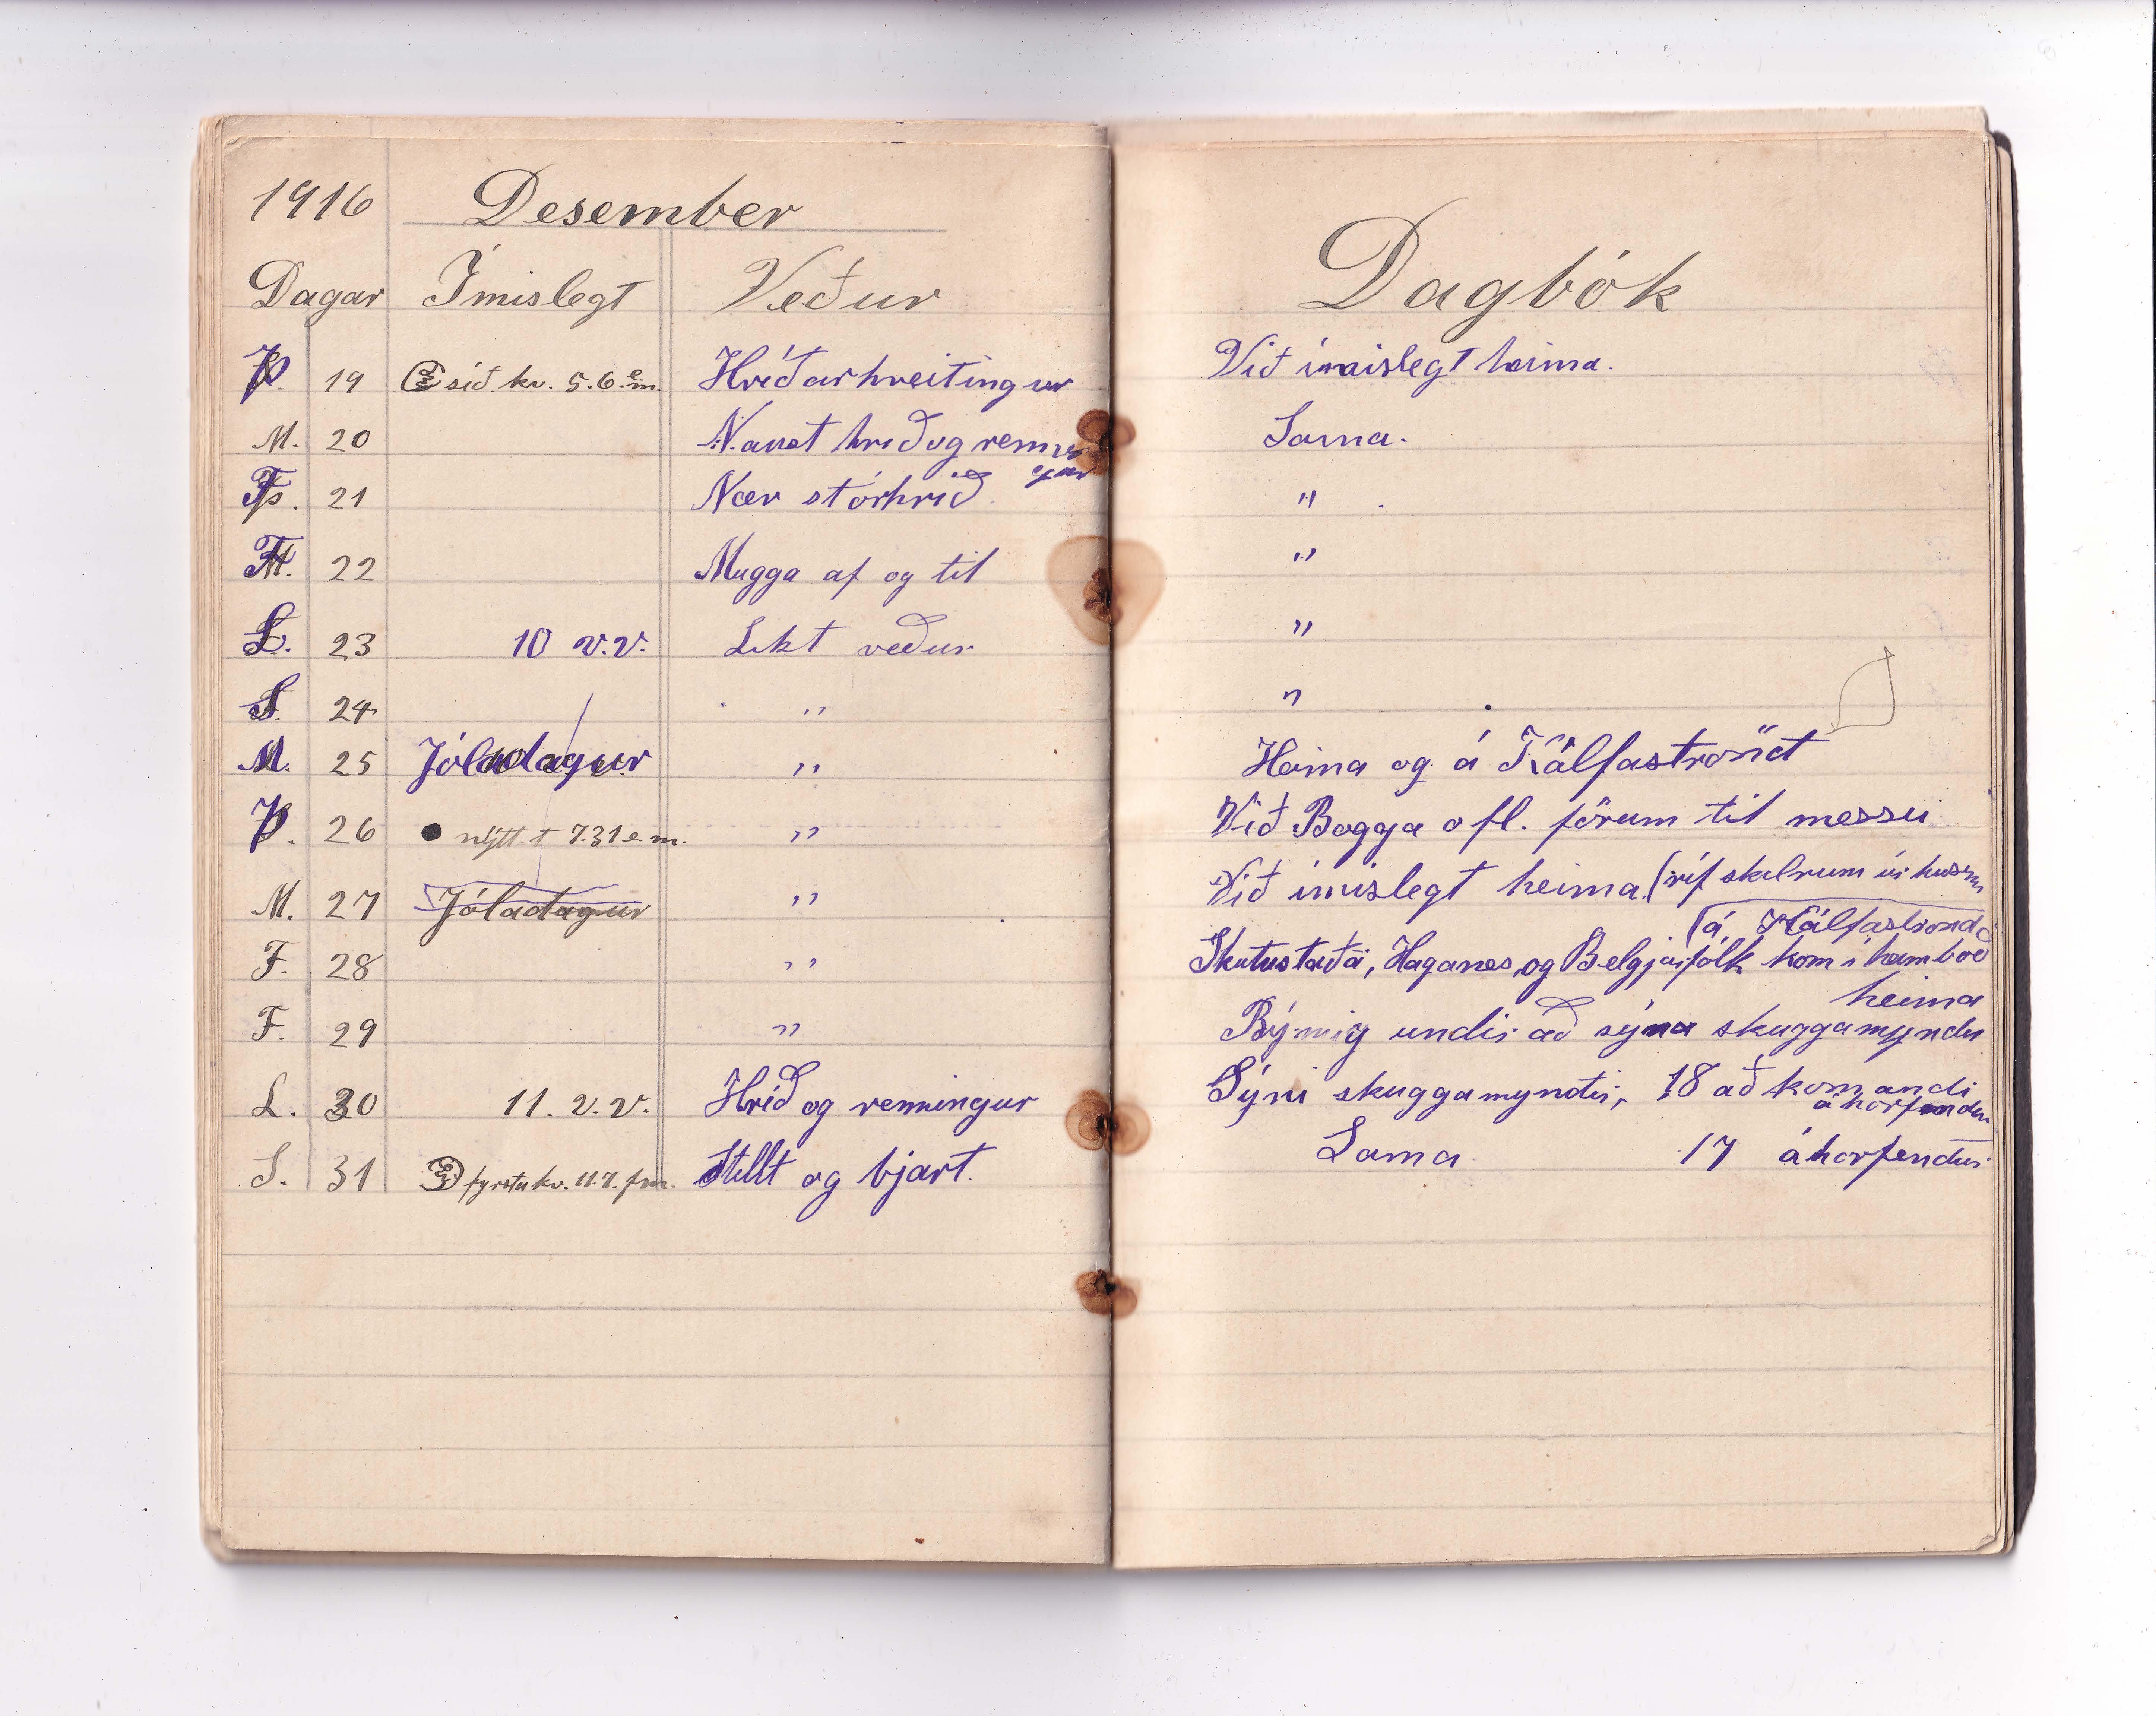 1916 Desember
Dagar Ímislegt Veður
Þ. 19 síð kv. 5.6. e.m. Hríðarhreitingur
M. 20 N.aust hríð og renn
ingur
F. 21 Nær stórhríð
F. 22 Mugga af og til
L. 23 10 v.v. Líkt veður
S. 24 "
M. 25 Jóladagur "
Þ. 26 nýtt t 7.31 e.m. "
M. 27 Jóladagur "
F. 28 "
F. 29 "
L. 30 11. v.v. Hríð og renningur
S. 31 fyrsta kv. 11.7. fm. Stillt og bjart.
Dagbók
Við ímislegt heima.
Sama.
"
"
"
"
Heima og á Kálfaströnd
Við Bogga ofl. förum til messu
Við ímislegt heima. (ríf skilrum úr húsinu
(á Kálfaströnd
Skútustaða, Haganes, og Belgjarfólk kom í heimboð
heima
Bý mig undir að sýna skuggamyndir
Sýni skuggamyndir, 18 að komandi
áhorfendur
Sama 17 áhorfendur